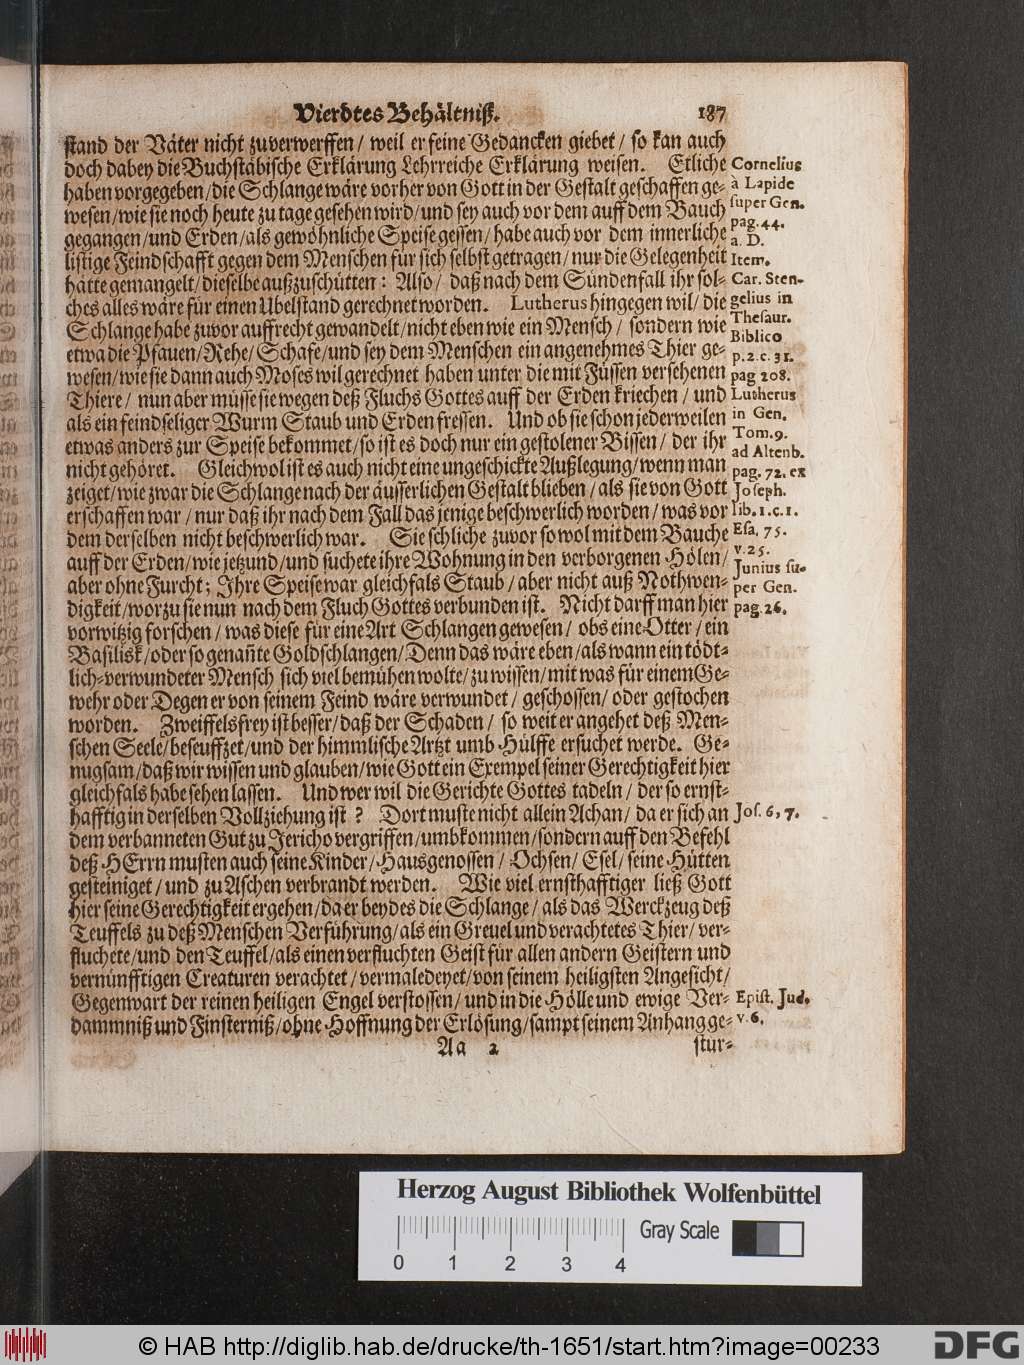 Vierdtes Behältniß. 187
stand der Väter nicht zuverwerffen / weil er feine Gedancken giebet / so kan auch
doch dabey die Buchstäbische Erklärung Lehrreiche Erklärung weisen. Etliche
haben vorgegeben / die Schlange wäre vorher von Gott in der Gestalt geschaffen ge-
wesen / wie sie noch heute zu tage gesehen wird / und sey auch vor dem auff dem Bauch
gegangen / und Erden / als gewöhnliche Speise gessen / habe auch vor dem innerliche
listige Feindschafft gegen dem Menschen für sich selbst getragen / nur die Gelegenheit
hätte gemangelt / dieselbe außzuschütten: Also / daß nach dem Sündenfall ihr sol-
ches alles wäre für einen Ubelstand gerechnet worden. Lutherus hingegen wil / die
Schlange habe zuvor auffrecht gewandelt / nicht eben wie ein Mensch / sondern wie
etwa die Pfauen / Rehe / Schafe / und sey dem Menschen ein angenehmes Thier ge-
wesen / wie sie dann auch Moses wil gerechnet haben unter die mit Füssen versehenen
Thiere / nun aber müsse sie wegen deß Fluchs Gottes auff der Erden kriechen / und
als ein feindseliger Wurm Staub und Erden fressen. Und ob sie schon jederweilen
etwas anders zur Speise bekommet / so ist es doch nur ein gestolener Bissen / der ihr
nicht gehöret. Gleichwol ist es auch nicht eine ungeschickte Außlegung / wenn man
zeiget / wie zwar die Schlange nach der äusserlichen Gestalt blieben / als sie von Gott
erschaffen war / nur daß ihr nach dem Fall das jenige beschwerlich worden / was vor
dem derselben nicht beschwerlich war. Sie schliche zuvor so wol mit dem Bauche
auff der Erden / wie jetzund / und suchete ihre Wohnung in den verborgenen Hölen /
aber ohne Furcht; Ihre Speise war gleichfals Staub / aber nicht auß Nothwen-
digkeit / worzu sie nun nach dem Fluch Gottes verbunden ist. Nicht darff man hier
vorwitzig forschen / was diese für eine Art Schlangen gewesen / obs eine Otter / ein
Basilisk / oder so genañte Goldschlangen / Denn das wäre eben / als wann ein tödt-
lich-verwundeter Mensch sich viel bemühen wolte / zu wissen / mit was für einem Ge-
wehr oder Degen er von seinem Feind wäre verwundet / geschossen / oder gestochen
worden. Zweiffelsfrey ist besser / daß der Schaden / so weit er angehet deß Men-
schen Seele / beseuffzet / und der himmlische Artzt umb Hülffe ersuchet werde. Ge-
nugsam / daß wir wissen und glauben / wie Gott ein Exempel seiner Gerechtigkeit hier
gleichfals habe sehen lassen. Und wer wil die Gerichte Gottes tadeln / der so ernst-
hafftig in derselben Vollziehung ist? Dort muste nicht allein Achan / da er sich an
dem verbanneten Gut zu Jericho vergriffen / umbkommen / sondern auff den Befehl
deß HErrn musten auch seine Kinder / Hausgenossen / Ochsen / Esel / seine Hütten
gesteiniget / und zu Aschen verbrandt werden. Wie viel ernsthafftiger ließ Gott
hier seine Gerechtigkeit ergehen / da er beydes die Schlange / als das Werckzeug deß
Teuffels zu deß Menschen Verführung / als ein Greuel und verachtetes Thier / ver-
fluchete / und den Teuffel / als einen verfluchten Geist für allen andern Geistern und
vernünfftigen Creaturen verachtet / vermaledeyet / von seinem heiligsten Angesicht /
Gegenwart der reinen heiligen Engel verstossen / und in die Hölle und ewige Ver-
dammniß und Finsterniß / ohne Hoffnung der Erlösung / sampt seinem Anhang ge-
Aa 2 stur-
Cornelius
à Lapide
super Gen.
pag. 44.
a. D.
Item.
Car. Sten-
gelius in
Thesaur.
Biblico
p. 2. c. 31.
pag 208.
Lutherus
in Gen.
Tom. 9.
ad Altenb.
pag. 72. ex
Joseph.
lib. 1. c. 1.
Esa. 75.
v. 25.
Junius su-
per Gen.
pag. 26.
Jos. 6, 7.
Epist. Jud.
v. 6.
Herzog August Bibliothek Wolfenbüttel
Gray Scale
0 1 2 3 4
© HAB http://diglib.hab.de/drucke/th-1651/start.htm?image=00233
DFG